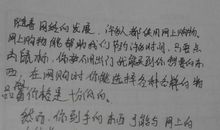 随着网络的发展,许多人都使用网上购物.
网上购物能帮助我们节约许时间,只要点
击鼠标,你就可用出门就能买到你想要的东
西,在网购时,你能选择各种各样的物
品當价格是十分低的.
然而,你到手的东西可能与网上的